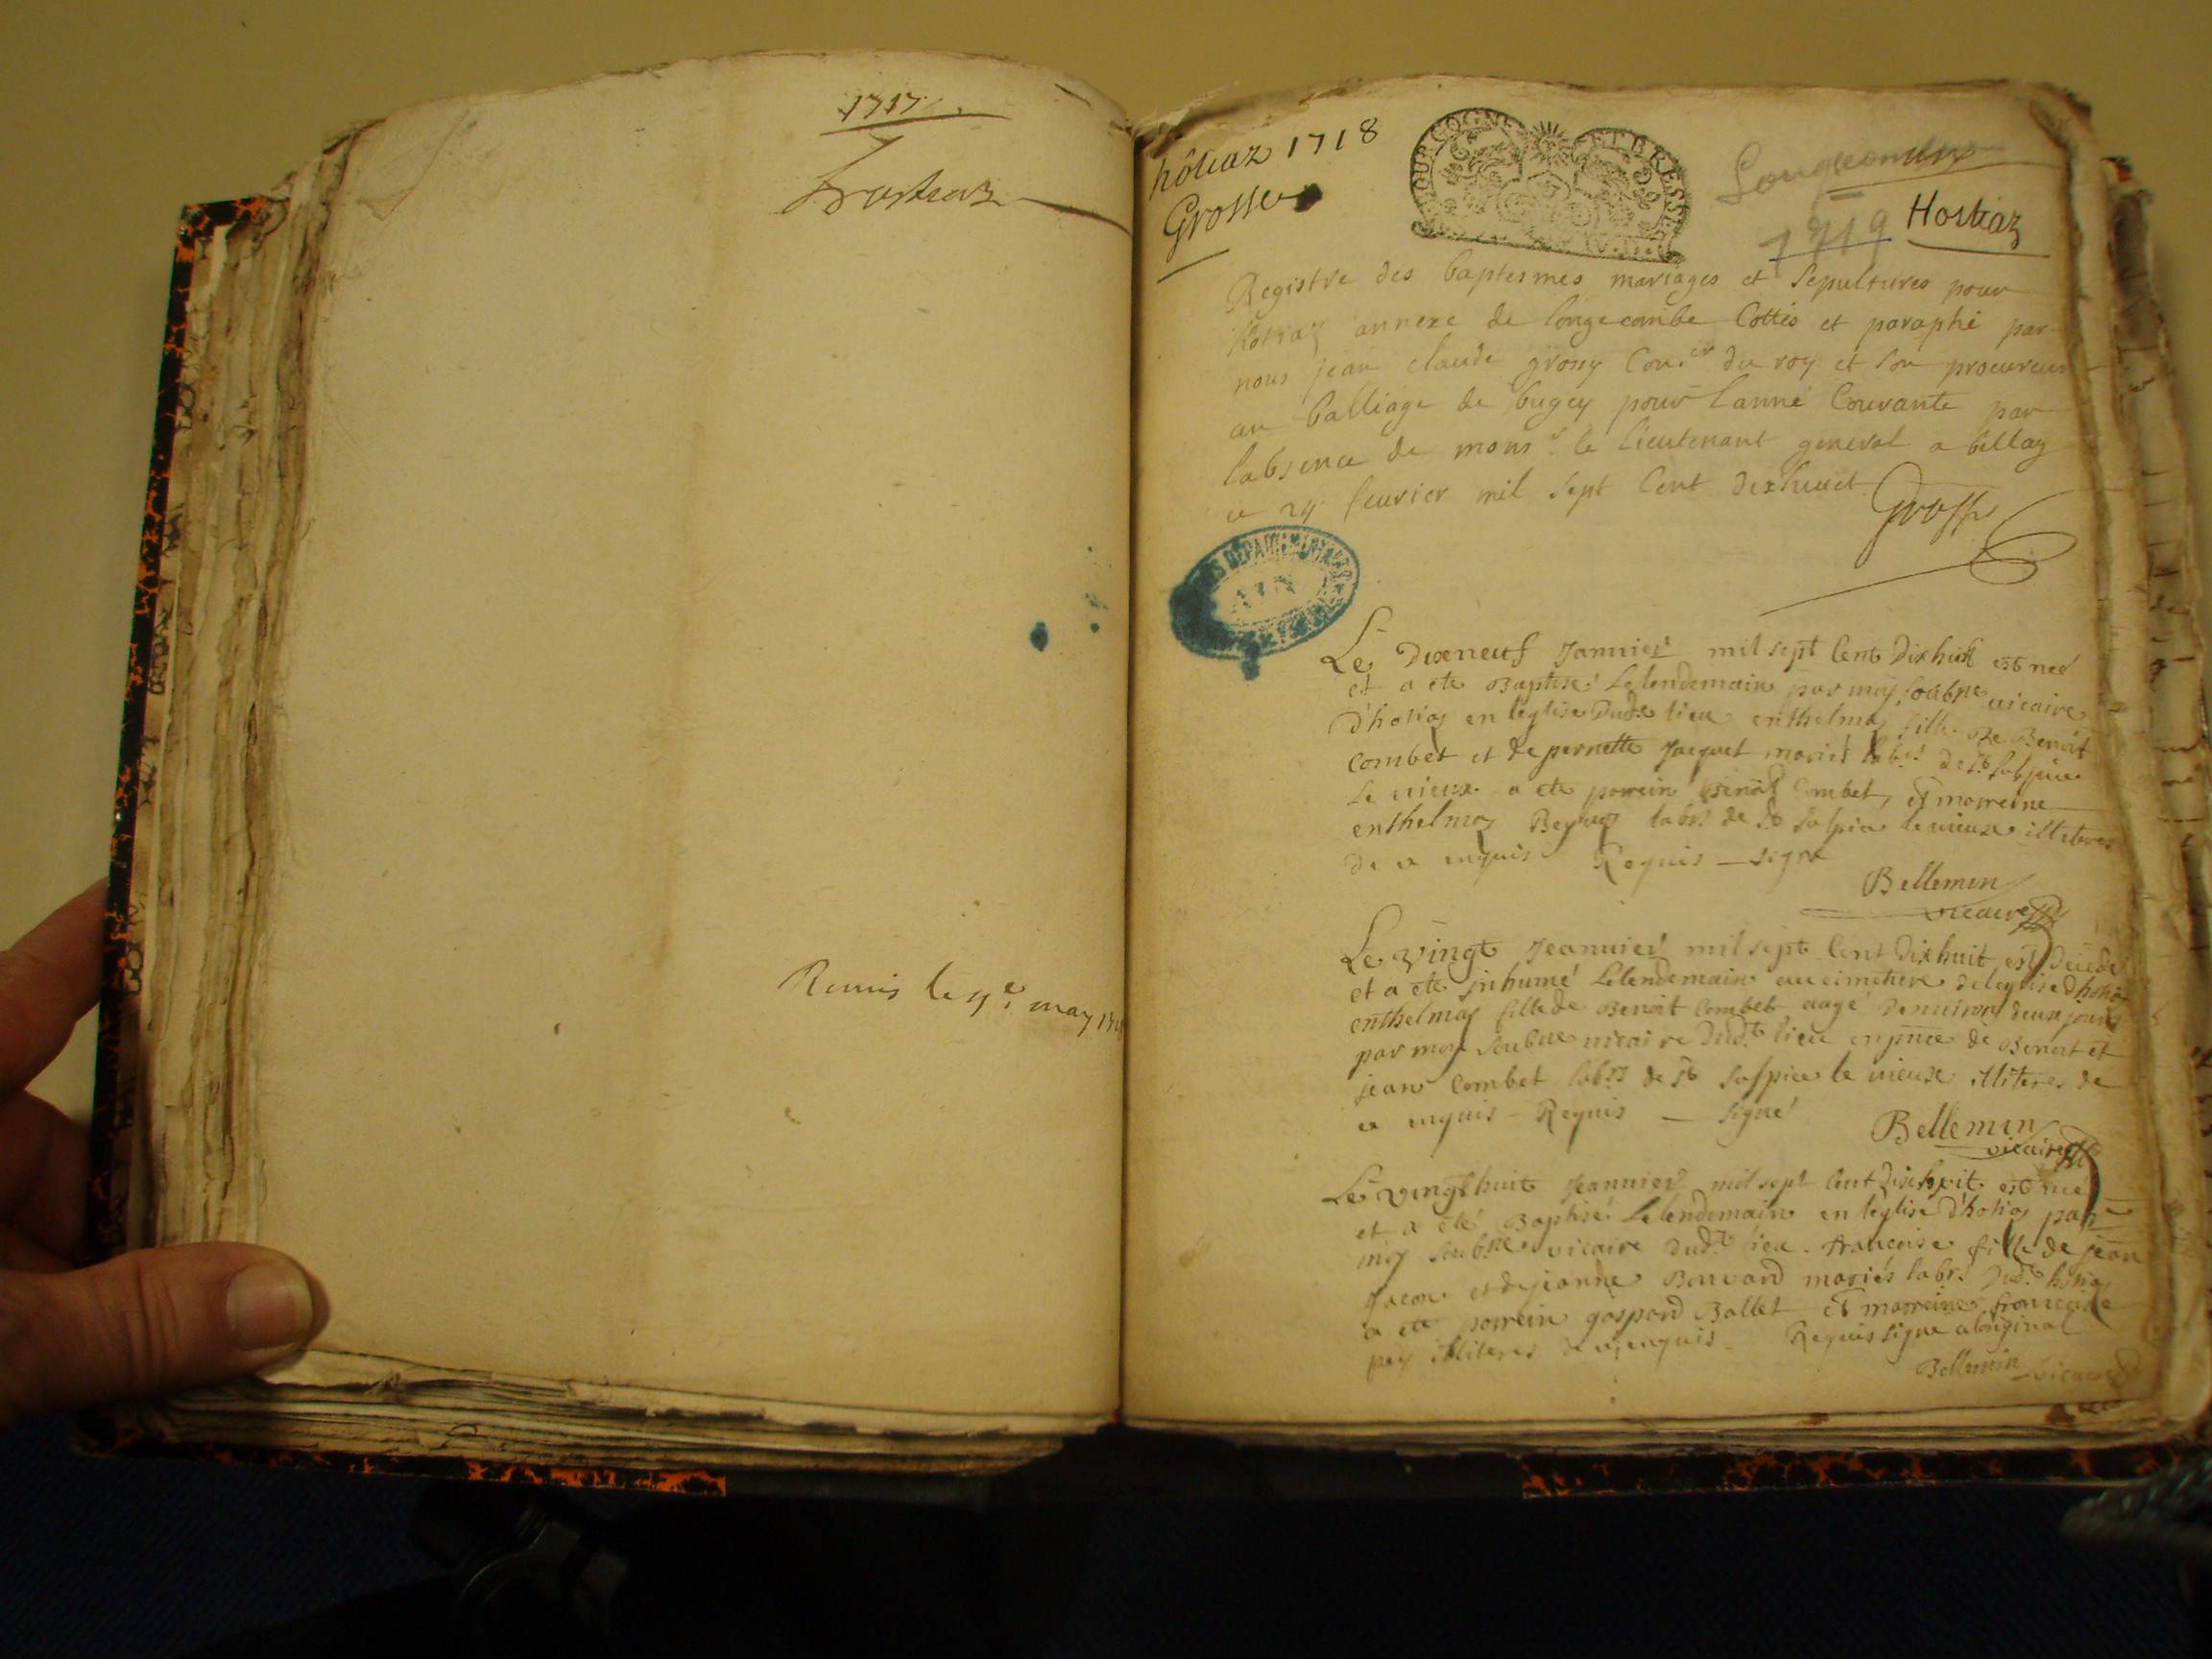 1717
hostiaz
Remis le 4e may 1718
hôtiaz 1718
Grosse
BOURGOGNE ET BRESSE
Longecombe
1719 Hostiaz
Registre des baptesmes mariages et sepultures pour
hotiaz annexe de longecombe Cottés et paraphé par
nous jean claude grossy Cons.er du roy et son procureur
au balliage de bugey pour lanné Courante par
labsence de mons.r le lieutenant general a bellay
ce 24 feuvrier mil sept Cent dixhuict
Grossy
ARCHIVES DEPARTEMENTALES
AIN
Le Dixeneuf Januier mil sept Cent Dixhuit est neé
et a ete Baptisé Lelendemain par moy soubne vicaire
d'hotiaz en leglise Dudt lieu enthelmaz fille De Benoit
Combet et de pernette Jacquet mariés labrs de St sulpice
Le vieux a ete parrein Benoit Combet, et marreine
enthelmaz labrs de St Sulpice le vieux illiteres
de ce enquis Requis — signé
Bellemin
vicaire
Le vingt Jeanuier mil sept Cent Dixhuit est décedé
et a ete inhumé Lelendemain au cimetiere de leglise d'hotiaz
enthelmaz fille de Benoit Combet aagé Denuiron deux jours
par moy soubne vicaire Dudt lieu en pnce de Benoit et
jean Combet labrs de St sulpice le vieux illiteres de
ce enquis - Requis — signé
Bellemin
vicaire
Le vingt huit Jeannier mil sept Cent Dixhuit est neé
et a eté Baptisé Lelendemain en leglise d'hotiaz par
moy soubne vicaire dudt lieu. francoise fille de jean
Jacon et de jeanne Bouvard mariés labrs dudt hotiaz
a ete parrein gaspard Ballet et marreine francoise
pey illiteres de ce enquis. Requis signe a loriginal
Bellemin vicaire